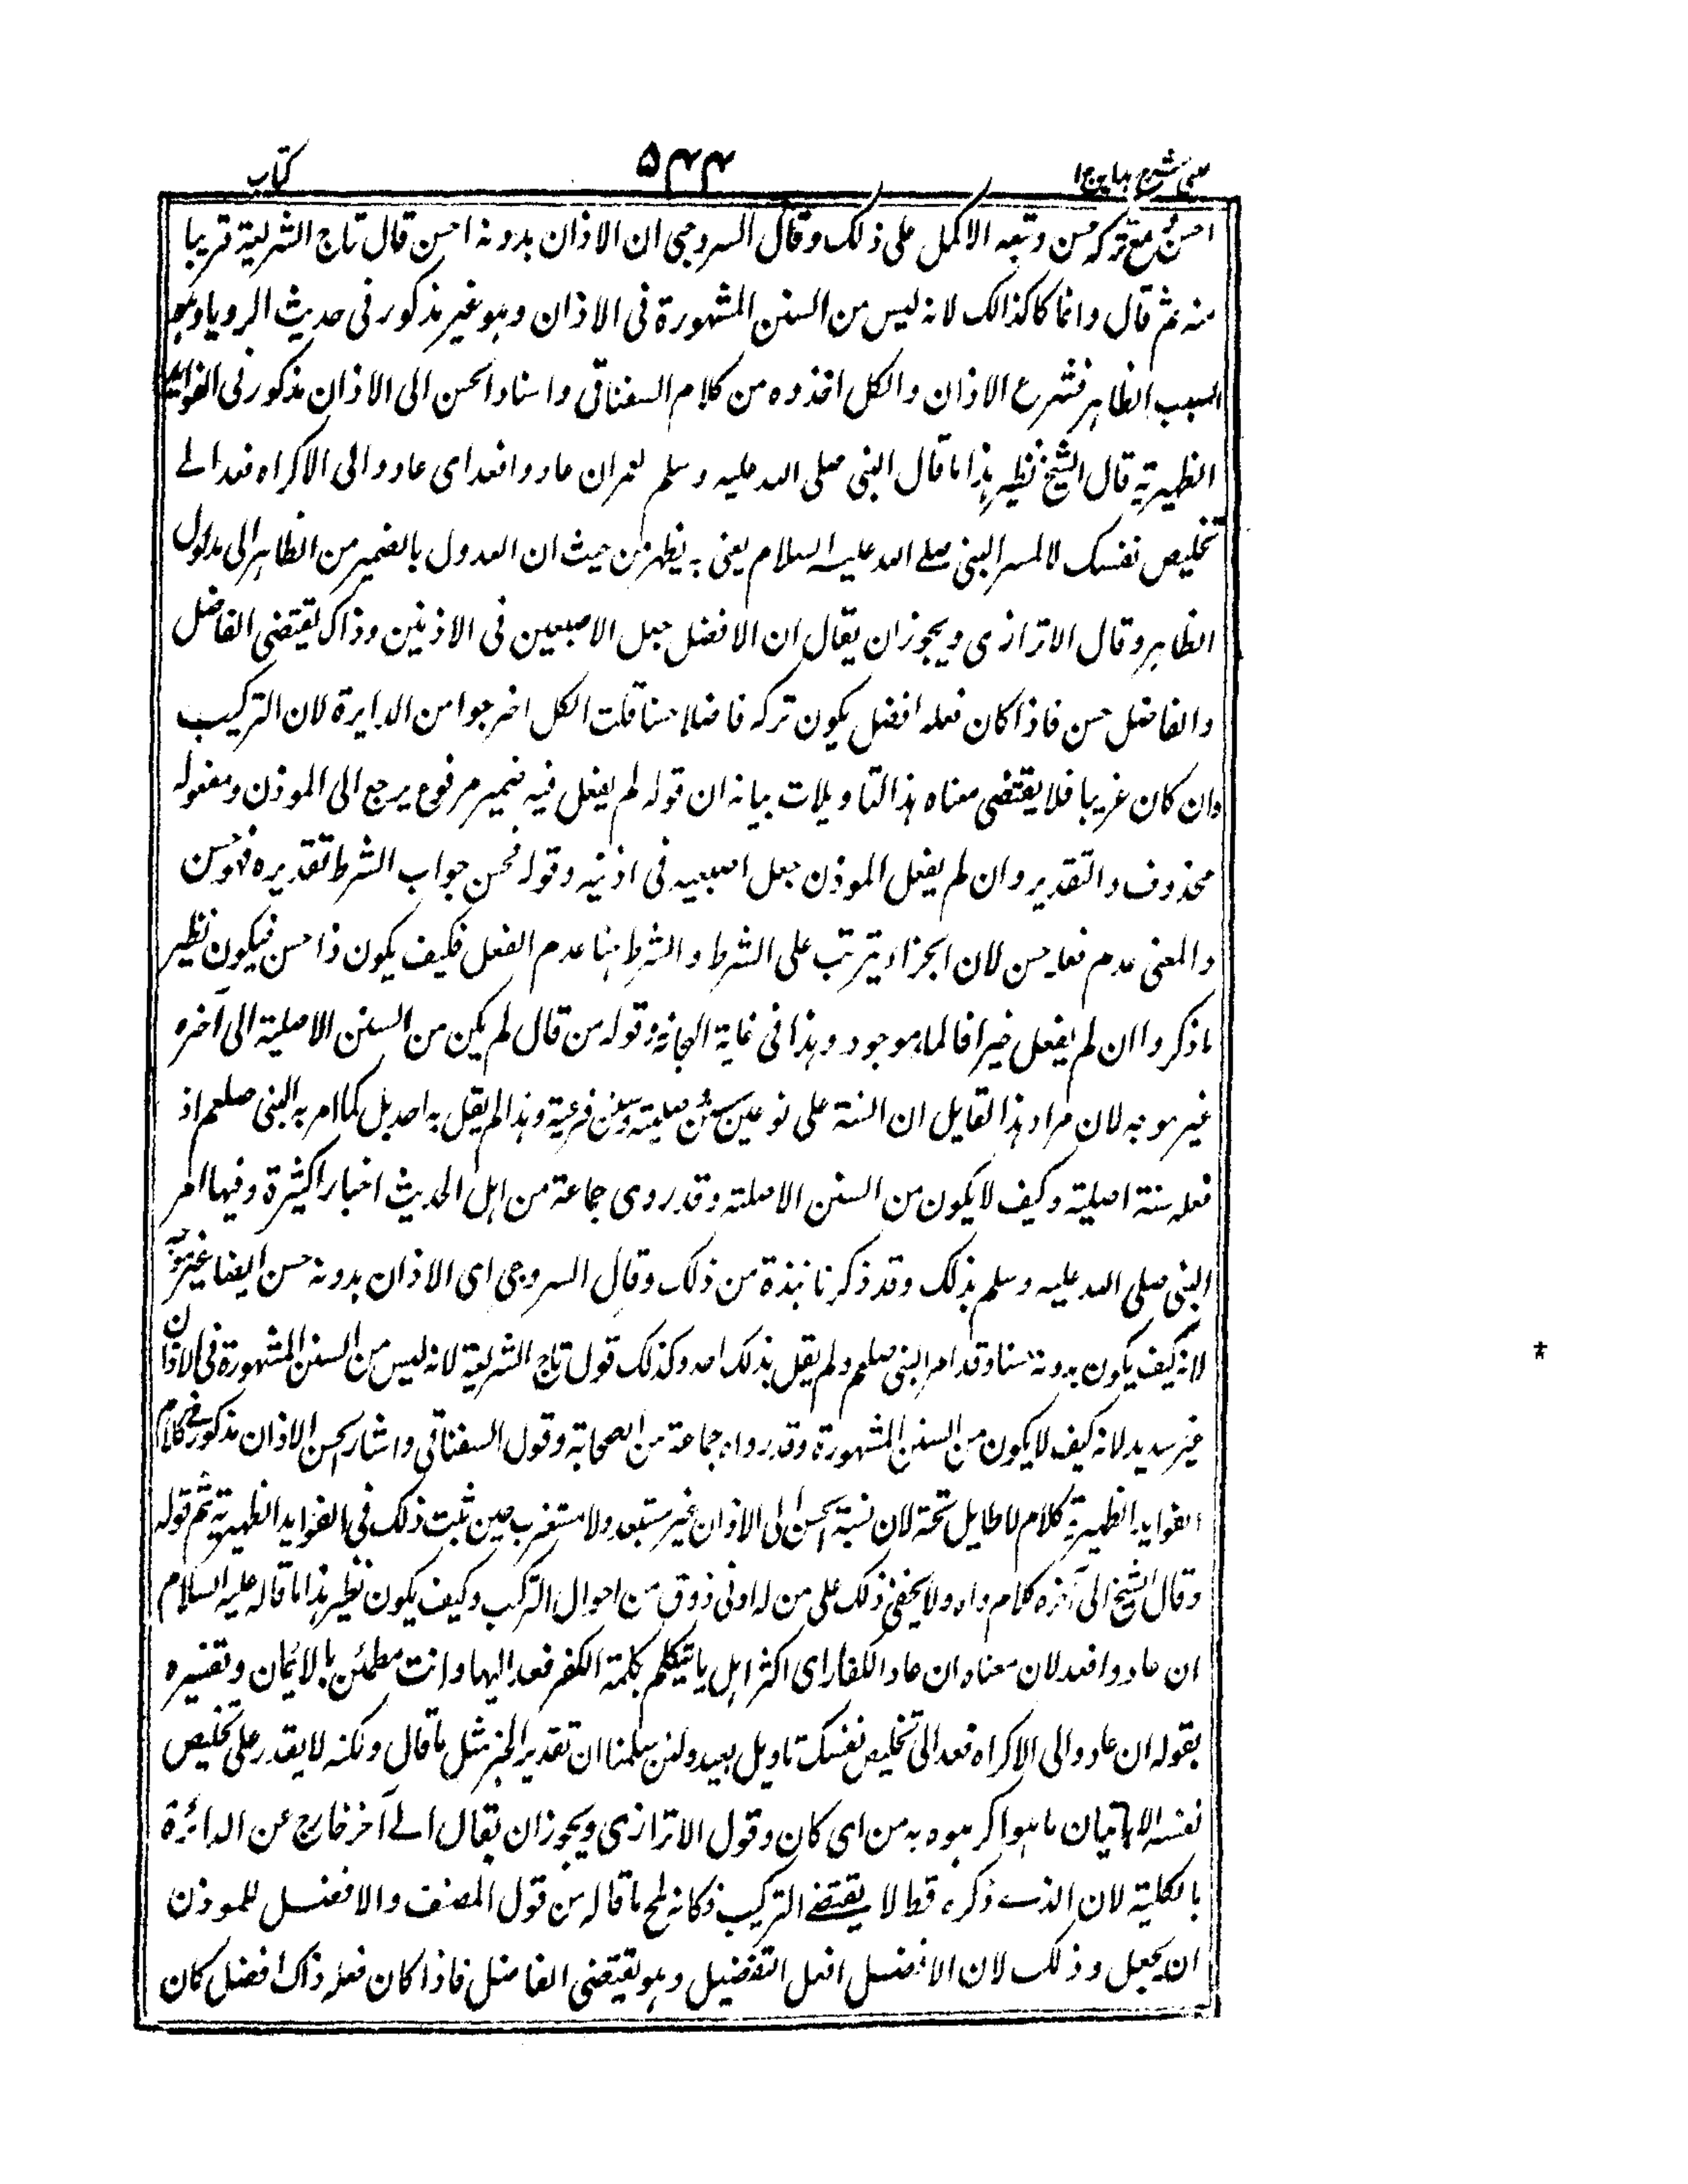 عینی شرح ہدایہ ج ۱ ۵۴۴ کتاب
احسن مع ترکہ حسن وتبعہ الاکمل علی ذلک وقال السروجی ان الاذان بدونہ احسن قال تاج الشریعة قریبا
منہ ثم قال وانما کا کذالک لانہ لیس من السنن المشہورة فی الاذان وہو غیر مذکور فی حدیث الرویا وہو
السبب الظاہر فشرع الاذان والکل اخذوہ من کلام السغناقی واسناد الحسن الی الاذان مذکور فی الفواید
الظہیریة قال الشیخ نظیر ہذا ما قال النبی صلی اللہ علیہ وسلم لعمران عادوا فعد ای عادوا الی الاکراہ فعد الے
تخلیص نفسک النبی صلے اللہ علیہ السلام یعنی بہ یظہر من حیث ان العدول بالضمیر من الظاہر الی مدلول
الظاہر وقال الاترازی ویجوز ان یقال ان الافضل جعل الاصبعین فی الاذنین وذاک یقتضی الفاضل
والفاضل حسن فاذا کان فعلہ افضل یکون ترکہ فاضلا حسنا قلت الکل اخرجوا من الدایرة لان الترکیب
وان کان غریبا فلا یقتضی معناہ ہذا التاویلات بیانہ ان قولہ لم یفعل فیہ ضمیر مرفوع یرجع الی الموذن ومفعولہ
محذوف والتقدیر وان لم یفعل الموذن جعل اصبعیہ فی اذنیہ وقولہ فحسن جواب الشرط تقدیرہ فہو حسن
والمعنی عدم فعلہ حسن لان الجزاء یترتب علی الشرط والشرط ہنا عدم الفعل فکیف یکون ذا حسن فیکون نظیر
ما ذکروا ان لم یفعل خیرا فالماہو موجود وہذا فی غایة وقولہ من قال لم یکن من السنن الاصلیة الی آخرہ
غیر موجہ لان مراد ہذا القایل ان السنة علی نوعین سنن صلیتہ وسنن فرعیة وہذا لم یقل بہ احد بل کما امر بہ النبی صلعم اذ
فعلہ سنة اصلیة وکیف لا یکون من السنن الاصلتہ وقد روی جماعة من اہل الحدیث اخبارا کثیرة وفیہا امر
النبی صلی اللہ علیہ وسلم بذلک وقد ذکرنا نبذة من ذلک وقال السروجی ای الاذان بدونہ حسن ایضا غیر موجہ
لانہ کیف یکون بدونہ حسنا وقد امر النبی صلعم ولم یقل بذلک احد وکذلک قول تاج الشریعة لانہ لیس من السنن المشہورة فی الاذان
غیر سدید لانہ کیف لا یکون من السنن المشہورة وقد رواہ جماعة من الصحابة وقول السغناقی واشار بحسن الاذان مذکور فی کلام
الفواید الظہیریة کلام لا طایل تحتہ لان نسبة الحسن الی الاذان غیر مستبعد ولا مستغرب حین ثبت ذلک فی الفواید الظہیریة ثم قولہ
وقال الشیخ الی آخرہ کلام واہ ولا یخفی ذلک علی من لہ ادنی ذوق من احوال الترکیب وکیف یکون نظیر ہذا ما قالہ علیہ السلام
ان عادوا فعد لان معناہ ان عاد الکفار ای اکثر اہل یا تیکلم بکلمة الکفر فعد الیہا وانت مطمئن بالایمان وتفسیرہ
بقولہ ان عادوا الی الاکراہ فعد الی تخلیص نفسک تاویل بعید ولئن سلمنا ان تقدیر الخبر مثل ما قال ولکنہ لا یقدر علی تخلیص
نفسہ الا باتیان ما ہو اکرہوہ بہ من ای کان وقول الاترازی ویجوز ان یقال الے آخر خارج عن الدائرة
بالکلیة لان الذے ذکرہ قط لا یقتضے الترکیب فکانہ لمح ما قالہ من قول المصنف والافضل للموذن
ان یجعل وذلک لان الافضل افعل التفضیل وہو یقتضی الفاضل فاذا کان فعلہ ذاک افضل کان
*